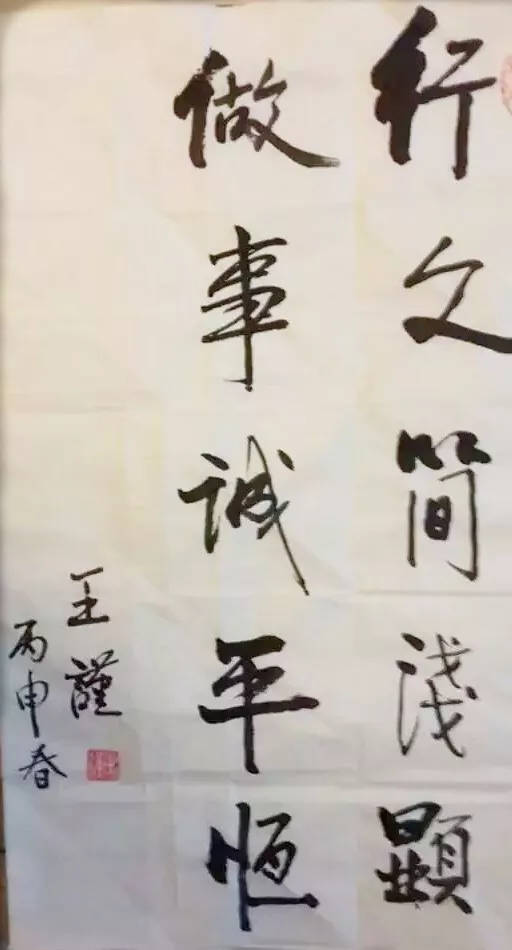 行文简淺顯
做事诚平恒
王謹
丙申春